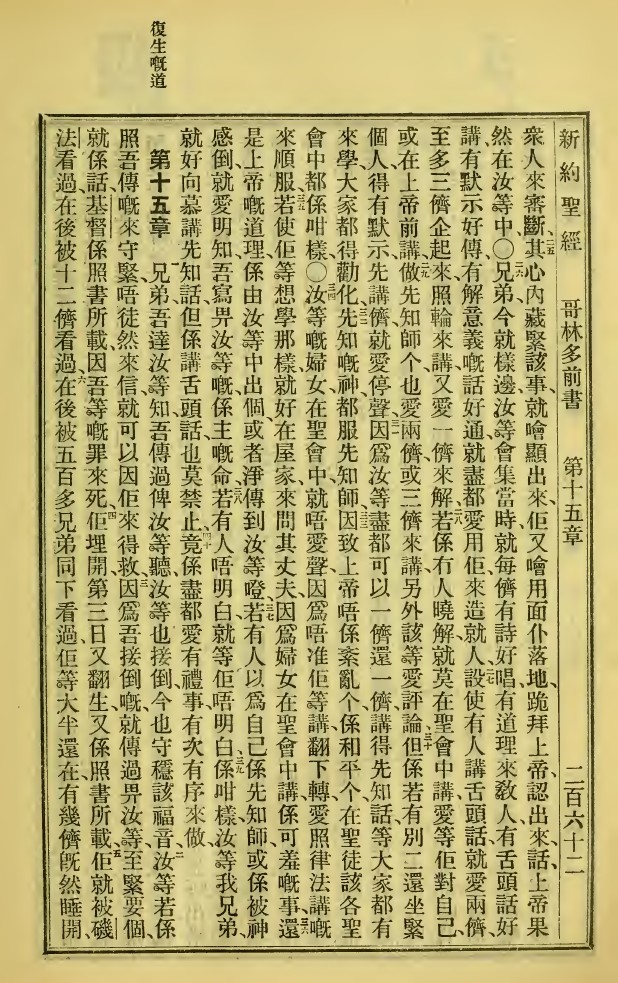 復生嘅道
新約聖經 哥林多前書 第十五章 二百六十二
衆人來審斷、二五其心內藏緊該事、就噲顯出來、佢又噲用面仆落地、跪拜上帝、認出來、話、上帝果
然在汝等中、〇二六兄弟、今就樣邊、汝等會集當時、就每儕有詩好唱、有道理來敎人、有舌頭話好
講、有默示好傳、有解意義嘅話好通、就盡都愛用佢來造就人、二七設使有人講舌頭話、就愛兩儕、
至多三儕企起來、照輪來講、又愛一儕來解、二八若係冇人曉解、就莫在聖會中講、愛等佢對自己、
或在上帝前講、二九做先知師个也愛兩儕、或三儕來講、另外該等愛評論、三十但係若有別二還坐緊
個人、得有默示、先講儕就愛停聲、三一因爲汝等盡都可以一儕還一儕講得先知話、等大家都有
來學、大家都得勸化、三二先知嘅神、都服先知師、三三因致上帝唔係紊亂个、係和平个、在聖徒該各聖
會中都係咁樣、〇三四汝等嘅婦女、在聖會中、就唔愛聲、因爲唔准佢等講、翻下轉愛照律法講嘅
來順服、三五若使佢等想學那樣、就好在屋家來問其丈夫、因爲婦女在聖會中講、係可羞嘅事、三六還
是上帝嘅道理係由汝等中出個、或者淨傳到汝等噔、三七若有人以爲自己係先知師、或係被神
感倒、就愛明知吾寫畀汝等嘅、係主嘅命、三八若有人唔明白、就等佢唔明白、三九係咁樣、汝等我兄弟、
就好向慕講先知話、但係講舌頭話也莫禁止、四十竟係盡都愛有禮事、有次有序來做、
第十五章 一兄弟、吾達汝等知、吾傳過俾汝等聽、汝等也接倒、今也守穩該福音、二汝等若係
照吾傳嘅來守緊、唔徒然來信、就可以因佢來得救、三因爲吾接倒嘅、就傳過畀汝等、至緊要個、
就係話、基督係照書所載、因吾等嘅罪來死、四佢埋開、第三日又翻生、又係照書所載、五佢就被磯
法看過、在後被十二儕看過、六在後被五百多兄弟同下看過、佢等大半還在、有幾儕旣然睡開、